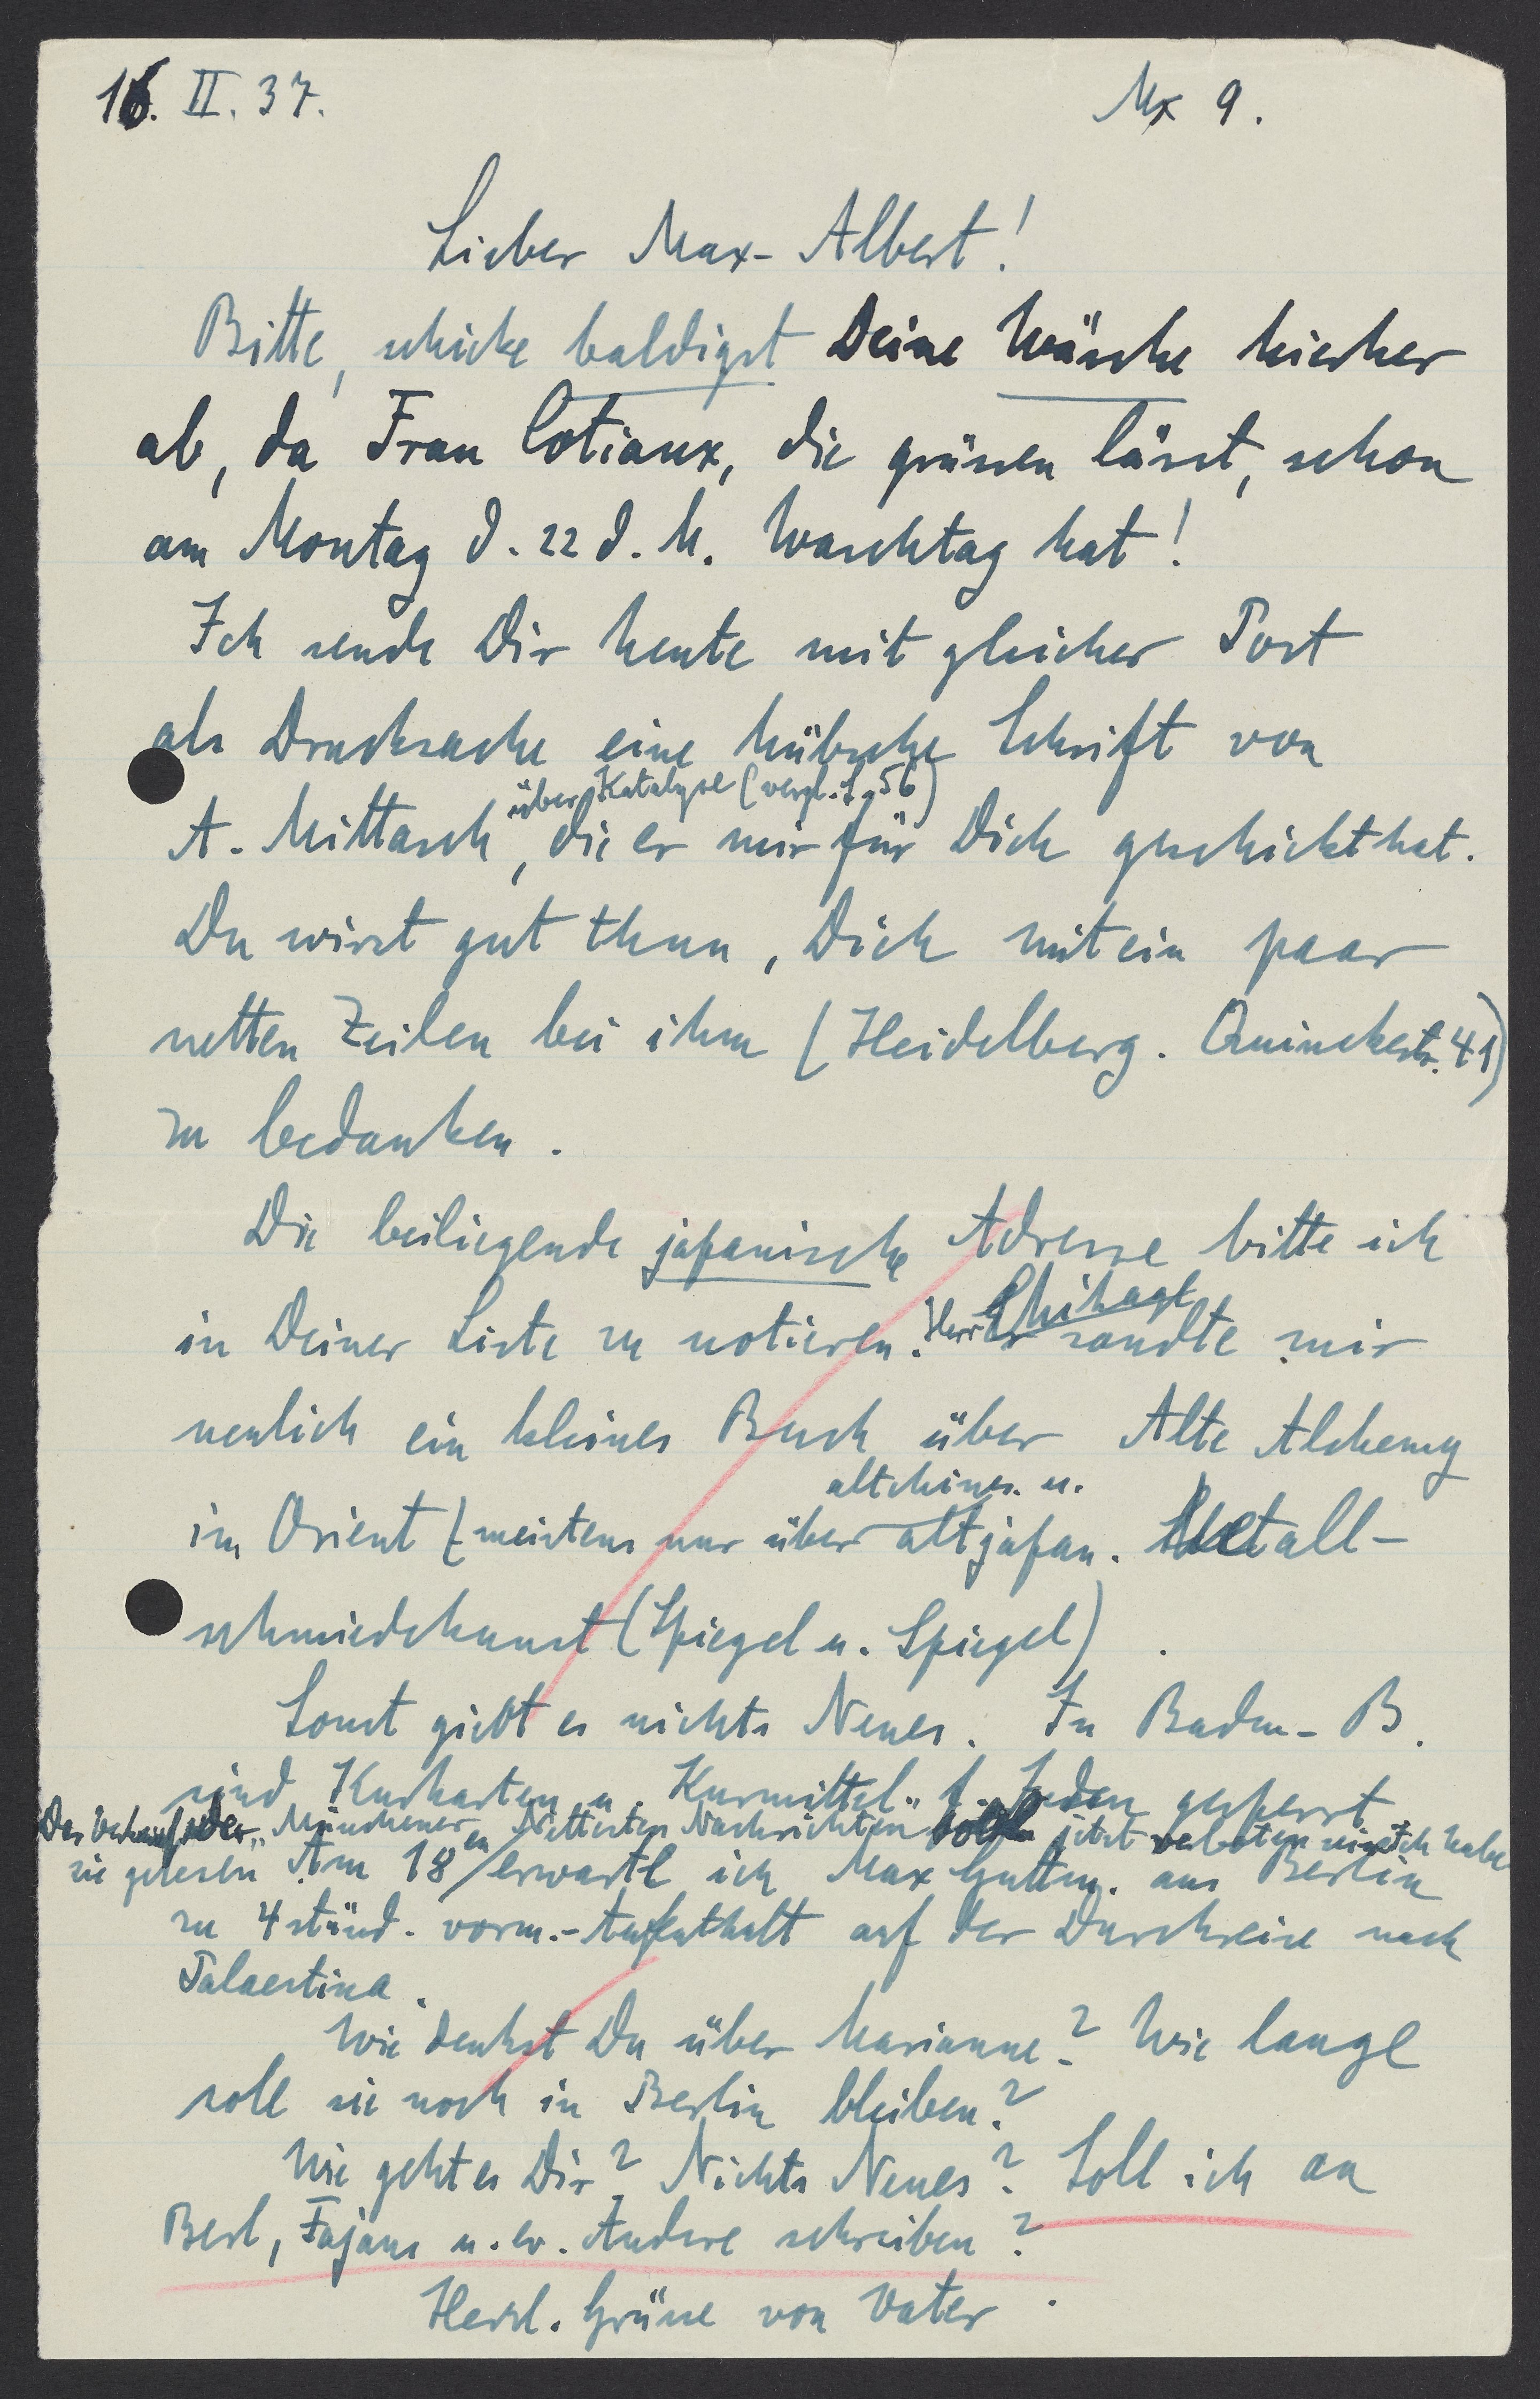 16. II. 37.
Mx 9.
Lieber Max-Albert!
Bitte, schicke baldigst Deine Wäsche hierher
ab, da Frau Cotiaux, die grüssen lässt, schon
am Montag d. 22 d. M. Waschtag hat!
Ich sende Dir heute mit gleicher Post
als Drucksache eine hübsche Schrift von
über Katalyse (vergl. S. 56)
A. Mittasch, die er mir für Dich geschickt hat.
Du wirst gut thun, Dich mit ein paar
netten Zeilen bei ihm (Heidelberg. Quinckestr. 41)
zu bedanken.
Die beiliegende japanische Adresse bitte ich
in Deiner Liste zu notieren. Herr Chikashige sandte mir
neulich ein kleines Buch über Alte Alchemy
altchines. u.
im Orient (meistens nur über altjapan. Metall-
schmiedekunst (Spiegel u. Spiegel).
Sonst giebt es nichts Neues. In Baden-B.
sind Kurkarten u. Kurmittel f. Juden gesperrt
Der Verkauf der "Münchener Neuesten Nachrichten" soll jetzt verboten sein. Ich habe
sie gelesen. Am 18en erwarte ich Max Guttm. aus Berlin
zu 4 stünd. vorm.-Aufenthalt auf der Durchreise nach
Palaestina.
Wie denkst Du über Marianne? Wie lange
soll sie noch in Berlin bleiben?
Wie geht es Dir? Nichts Neues? Soll ich an
Berl, Fajans u. ev. Andere schreiben?
Herzl. Grüsse von Vater.